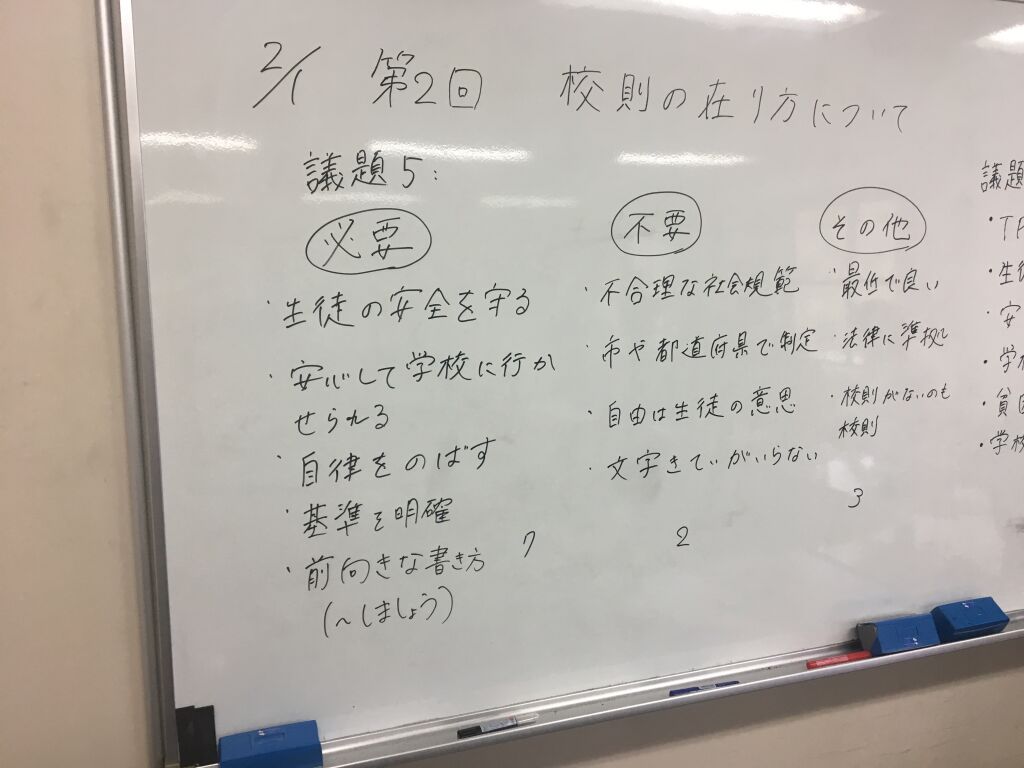 2/1 第2回 校則の在り方について
議題5:
必要
・生徒の安全を守る
・安心して学校に行か
せられる
・自律をのばす
・基準を明確
・前向きな書き方
(~しましょう)
7
不要
・不合理な社会規範
・市や都道府県で制定
・自由は生徒の意思
・文字きてぃがいらない
2
その他
・最低で良い
・法律に準拠し
・校則がないのも
校則
3
議題
・生徒
・安
・学校
・貧困
・学校